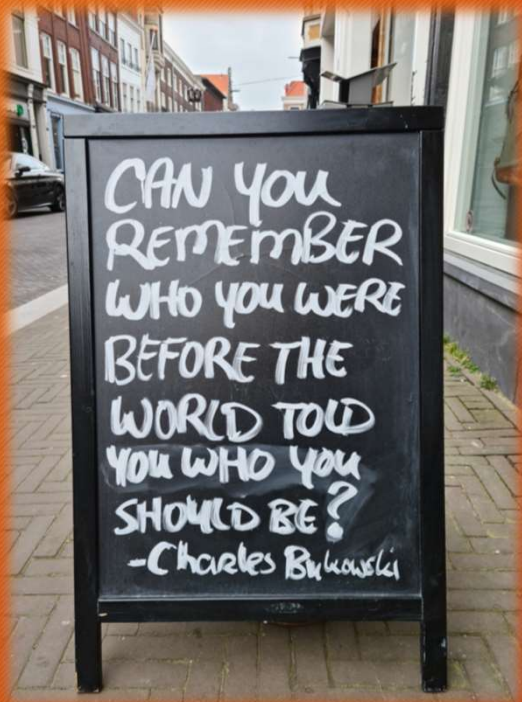 CAN YOU
REMEMBER
WHO YOU WERE
BEFORE THE
WORLD TOLD
YOU WHO YOU
SHOULD BE?
-Charles Bukowski